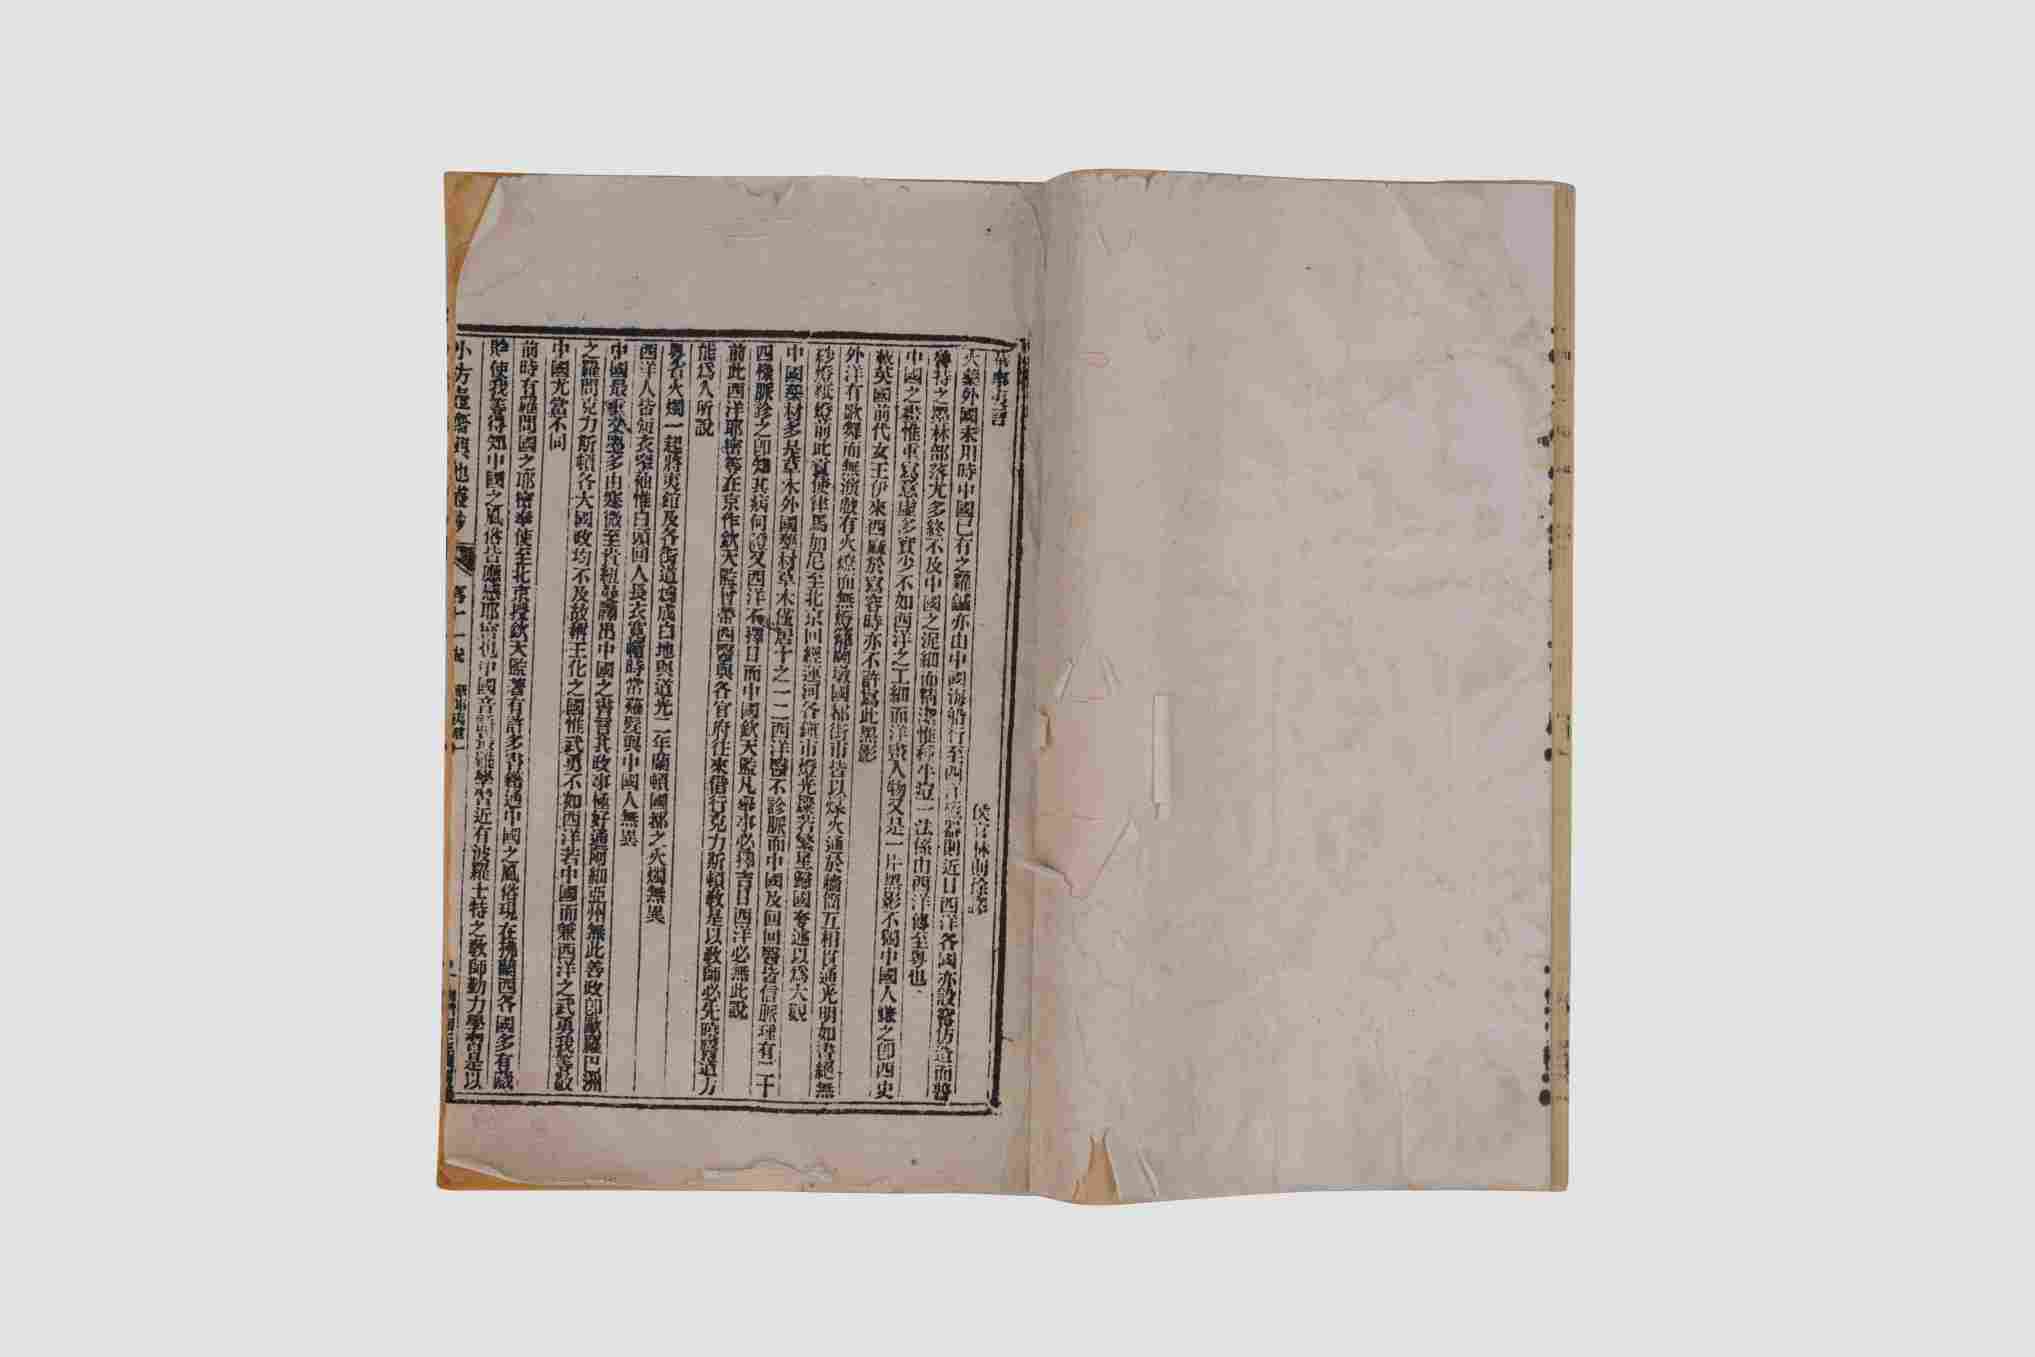 華事夷言
侯官林則徐譯
火藥外國未用時中國已有之羅鍼亦由中國海船行至西洋磁器則近日西洋各國亦設窰仿造而將
薄特之墨林部落尤多終不及中國之泥細而精潔惟種牛痘一法係由西洋傳至粵也
中國之畫惟重寫意虛多實少不如西洋之工細而洋畫人物又是一片黑影不獨中國人嫌之卽西史
載英國前代女王伊來西麻於寫容時亦不許寫此黑影
外洋有歌舞而無演戲有火燈而無燈籠 國都街市皆以煤火通於牆筒互相貫通光明如晝絕無
紗燈紙燈前此貢使律馬加尼至北京回經運河各鎮市燈光燦若繁星歸國夸述以爲大觀
中國藥材多是草木外國藥材草木僅居十之一二西洋醫不診脈而中國及回回醫皆信脈理有二十
四樣脈診之卽知其病何證又西洋不擇日而中國欽天監凡舉事必擇吉日西洋必無此說
前此西洋耶穌等在京作欽天監曾帶西醫與各官府往來借行克力斯頓敎是以敎師必先曉醫道方
能爲人所說
粵省火燭一起將夷館及各街道燒成白地與道光二年蘭頓國都之火燭無異
西洋人皆短衣窄袖惟白頭回人長衣寬幅時常薙髮與中國人無異
中國最重文墨多由寒微至貴紐曼譯出中國之書言其政事極好通阿細亞州無此善政卽歐羅巴洲
之羅問克力斯頓各大國政均不及故稱王化之國惟武勇不如西洋若中國而兼西洋之武勇我等敵
中國尤當不同
前時有羅問國之耶穌奉使至北京授欽天監著有許多書籍通中國之風俗現在拂蘭西各國多有藏
貯使我等得知中國之風俗皆應感耶穌也中國音語最難學習近有波羅士特之敎師勤力學習是以
小方壺齋輿地叢鈔
第十一帙
華事夷言
一